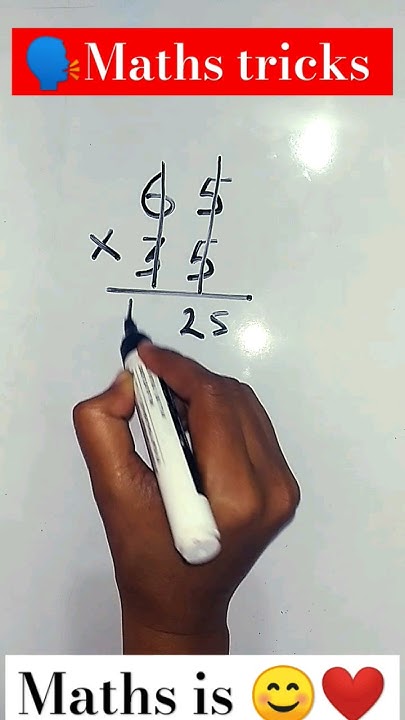 🗣️Maths tricks
6 5
× 3 5
1 25
Maths is 😊❤️